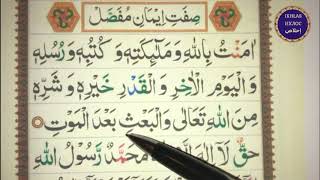 صِفَتِ اِيمَانِ مُفَصَّل
اٰمَنْتُ بِاللّٰهِ وَمَلٰٓئِكَتِهٖ وَكُتُبِهٖ وَرُسُلِهٖ
وَالْيَوْمِ الْاٰخِرِ وَالْقَدْرِ خَيْرِهٖ وَشَرِّهٖ
مِنَ اللّٰهِ تَعَالٰى وَالْبَعْثِ بَعْدَ الْمَوْتِ
حَقٌّ لَٓا اِلٰهَ مُحَمَّدٌ رَسُولُ اللّٰهِ
IKHLAS
ИХЛОС
إخلاص